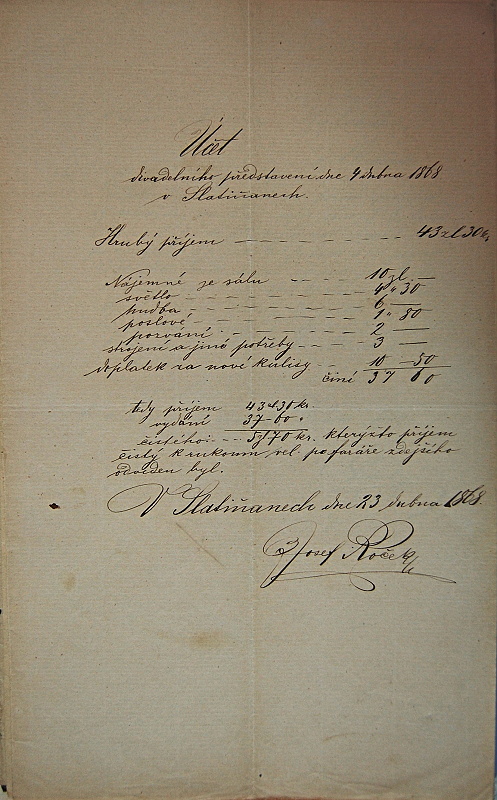 Účet
divadelního představení dne 4 dubna 1868
v Slatiňanech.
Hrubý příjem — — — — — 43 zl 30 kr
Nájemné ze sálu — — — 10 zl. —
světlo — — — — 4 " 30
hudba — — — — 6 —
poslové — — — — 1 " 80
pozvání — — — — 2 —
strojení a jiné potřeby — — 3 —
doplatek za nové kulisy — — 10 — 50
činí 37 60
tedy příjem 43 zl 30 kr.
vydání 37 — 60 "
čistého: — — 5 / 70 kr. kterýžto příjem
čistý k rukoum vel. p. faráře zdejšího
odveden byl.
V Slatiňanech dne 23 dubna 1868.
Josef Roček